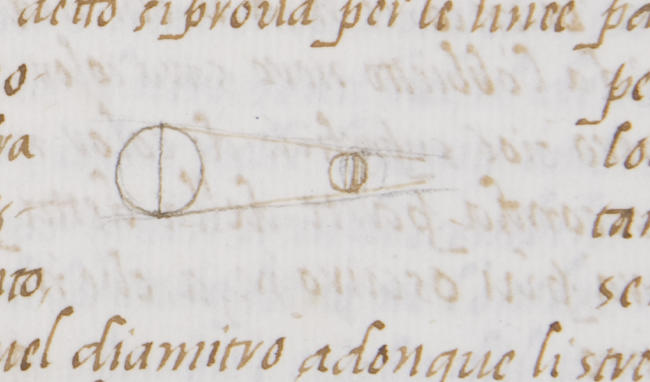 detto si prova per le linee pa
o pe
ra lo
tan
nto, se
uel diamitro adonque li stre